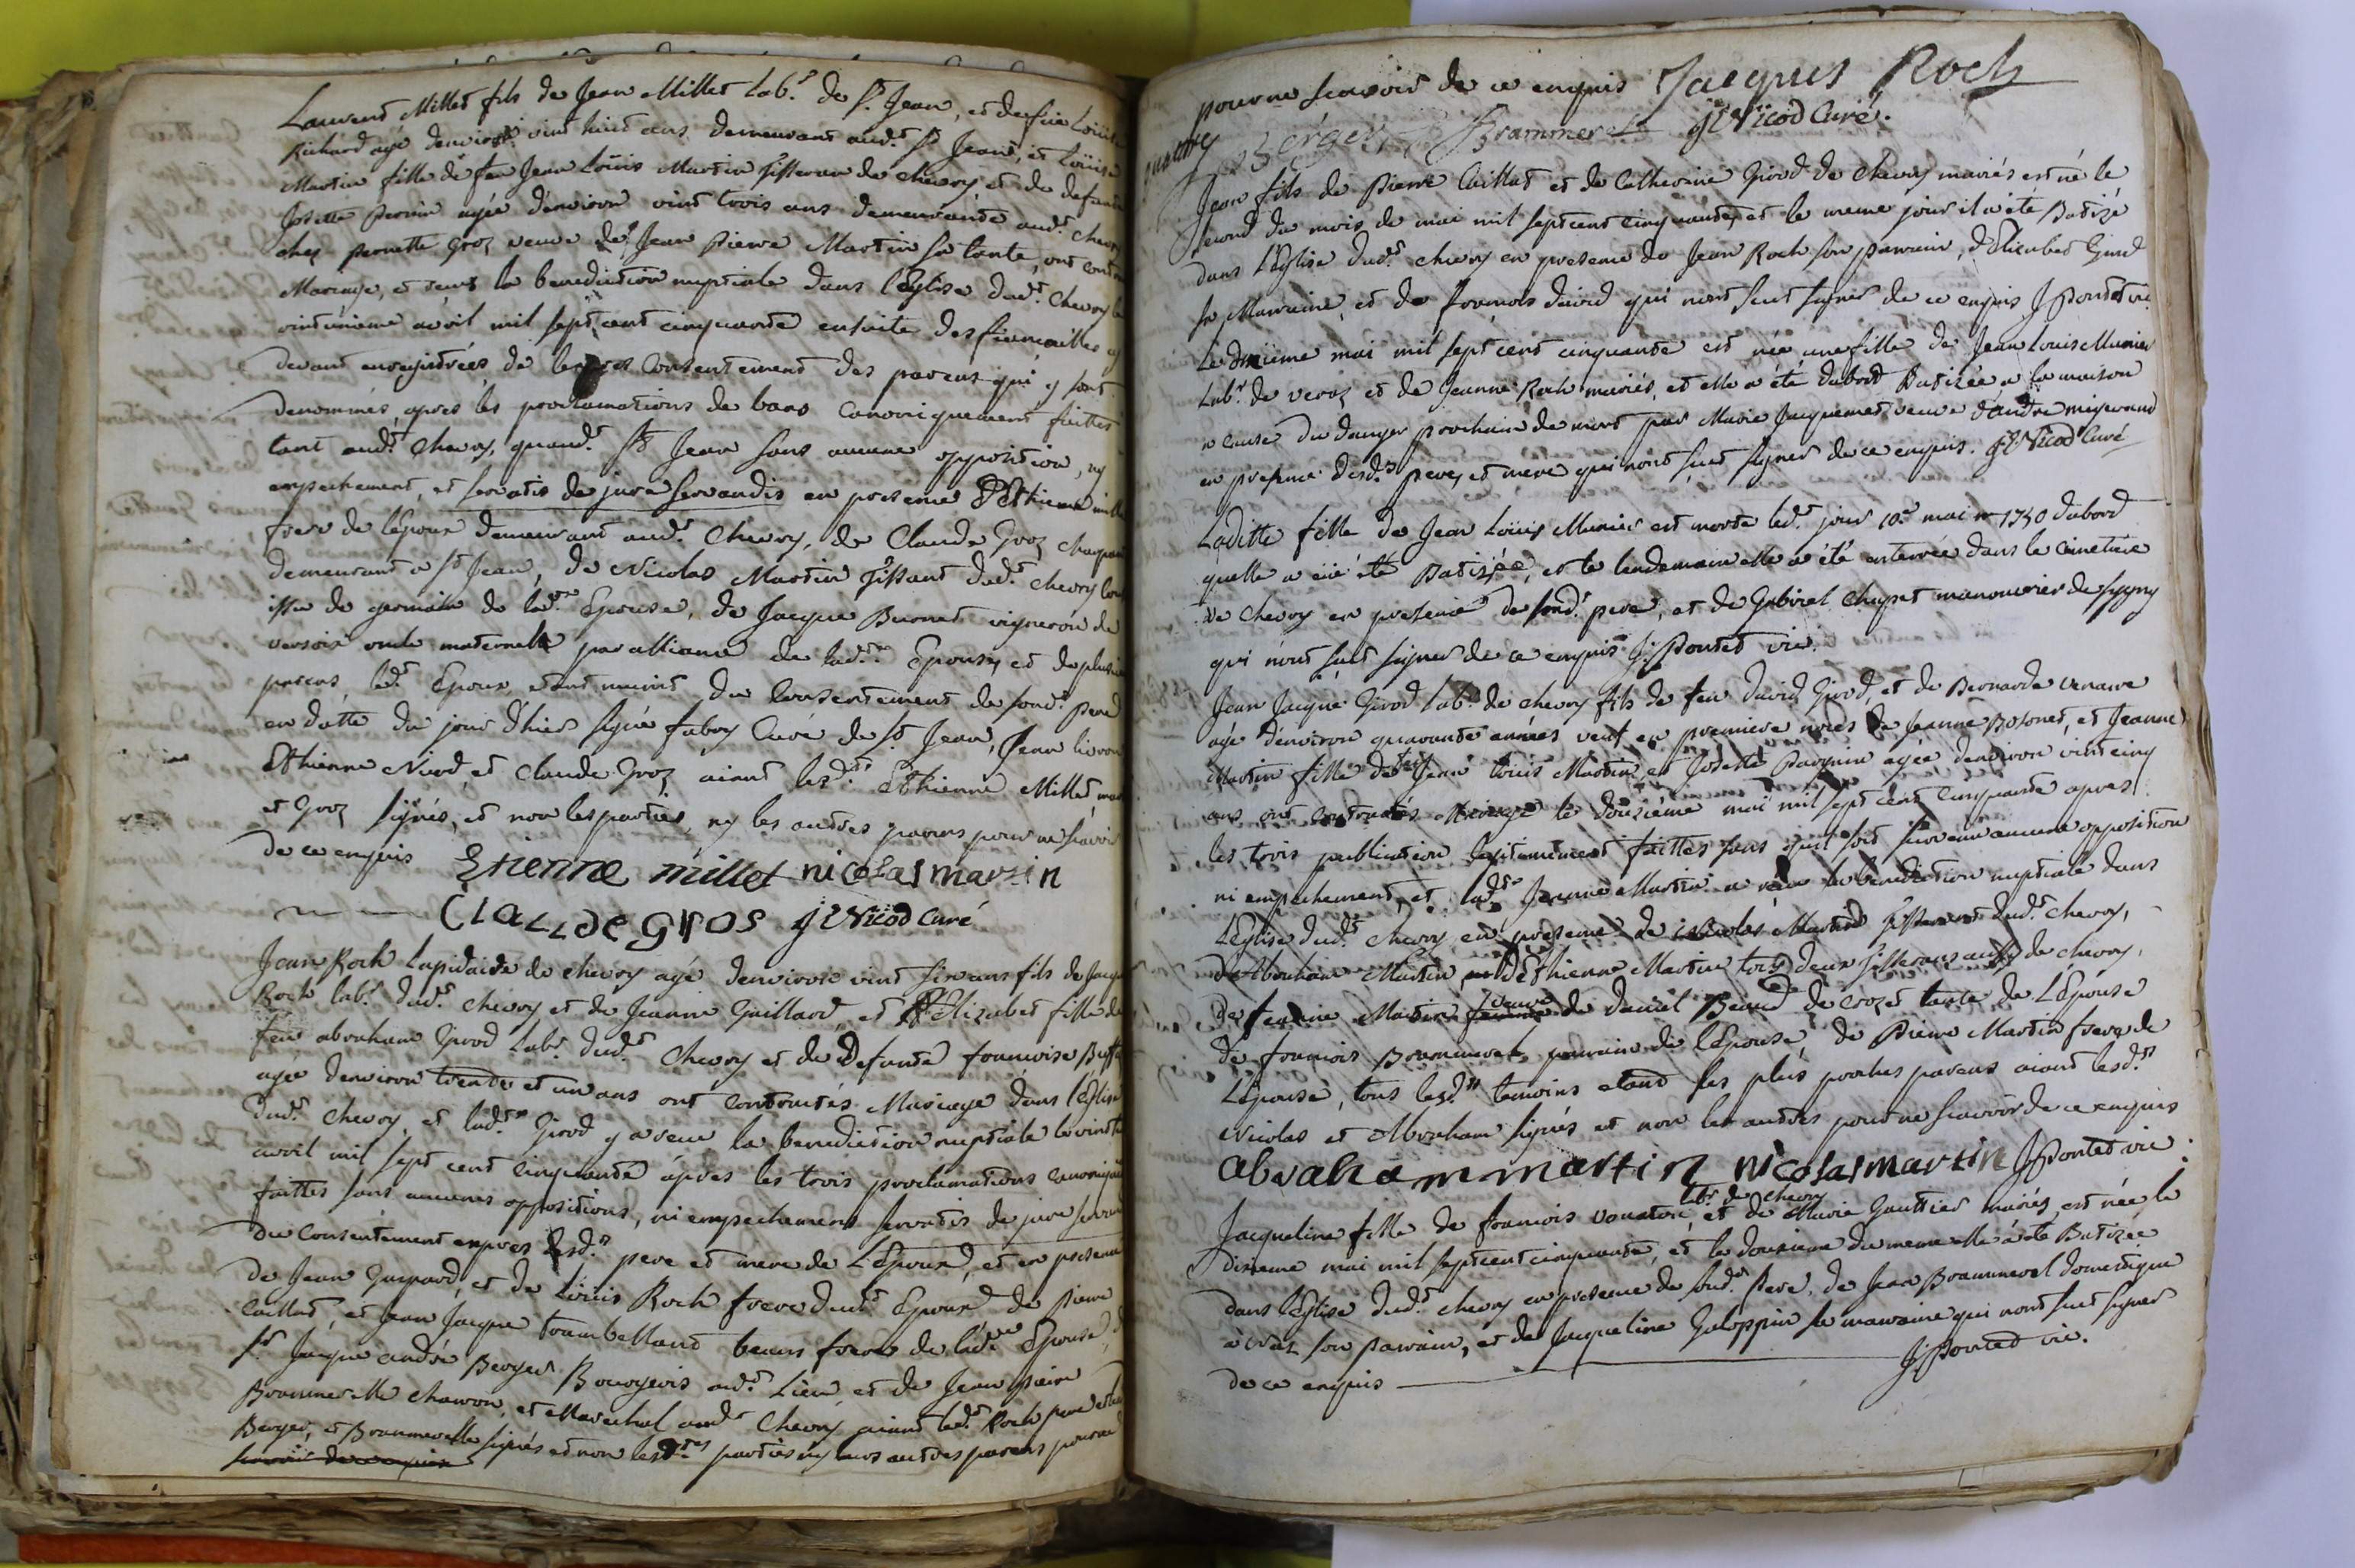 Laurent Millet fils de Jean Millet Lab.r de St Jean, et de feüe Loüise
Richard agé denviron vint huit ans demeurant aud.t St Jean, et Loüise
Martin fille de feu Jean Loüis Martin tisseran de chevry et de defunte
Josette Pernin agée denviron vint trois ans demeurante aud.t chevry
chez Pernette Groz veuve de Jean Pierre Martin sa tante, ont contracté
Mariage, et receu la benediction nuptiale dans l'Eglise dud.t Chevry le
vintunieme avril mil sept cent cinquante ensuite des fiancailles cy
devant enregistrées, de l'expres Consentement des parens qui y sont
denommés, apres les proclamations de bans Canoniquement faittes
tant aud.t Chevry, quaud.t St Jean sans aucune opposition, ny
empechement, et servatis de jure servandis en presence d'Ethienne millet
frere de lepoux demeurant aud.t Chevry, de Claude Groz
demeurant a St Jean, de Nicolas Martin tissant dud.t chevry
issu de germain de lad.te Epouse, de Jacque Burnet vigneron de
versoix oncle maternelle par alliance de lad.te Epouse, et de plusieurs
parens, led.t Epoux etant munit du Consentement de sond.t Pere
en datte du jour d'hier signé fabry Curé de St Jean, Jean
Ethienne Nicod, et Claude Groz aiant lesd.ts Ethienne Millet,
et Groz signés, et non les parties, ny les autres parens pour ne scavoir
de ce enquis Etienne millet nicolas martin
Claude gros JC Nicod Curé
Jean Roch Lapidaire de chevry agé denviron vint six ans fils de Jacque
Roch lab.r dud.t chevry et de Jeanne Guillard, et Elizabet fille de
feu abraham Girod Lab.r dud.t Chevry et de Defunte francoise
agée denviron trente et un ans ont contractés Mariage dans l'Eglise
dud.t Chevry, et lad.te Girod y a receu la benediction nuptiale le vint
avril mil sept cent cinquante apres les trois proclamations canoniquement
faittes sans aucunes oppositions, ni empechement servatis de jure servandis
du Consentement expres desd.ts pere et mere de L'Epoux, et en presence
de Jean Gaspard, et de Loüis Roch frere dud.t Epoux, de Pierre
Caillat, et Jean Jacque trambelland beaux freres de lad.te Epouse, de
Sr Jacque andré Berger Bourgeois aud.t Lieu et de Jean Pierre
Brammerelle charron, et Marechal aud.t Chevry, aiant led.t Roch pere
Berger, et Brammerelle signés et non lesd.tes parties ny leurs autres parens pour ne
scavoir de ce enquis
pour ne scavoir de ce enquis Jacques Roch
Berger Brammerel JC Nicod Curé.
Jean fils de Pierre Caillat et de Catherine Girod de Chevry mariés est né le
second du mois de mai mil sept cent cinquante, et le meme jour il a été Batizé
dans L'Eglise dud.t chevry en presence de Jean Roch son parrain, d'Elizabet Girod
sa Marraine, et de francois david qui n'ont sceut signer de ce enquis J Pontet vic.
Le dixieme mai mil sept cent cinquante est née une fille de Jean Louis Munier
Lab.r de veraz et de Jeanne Roch mariés, et elle a été dabord Batizée a la maison
a cause du danger prochain de mort par Marie Jacquemet veuve d'andre
en presence desd.ts pere, et mere qui n'ont sceut signer de ce enquis. JC Nicod Curé
Laditte fille de Jean Loüis Munier est morte led.t jour 10.e mai 1750 dabord
quelle a été Batizée, et le lendemain elle a été enterrée dans le cimetiere
de chevry en presence de sond.t pere, et de Gabriel Chapet manouvrier de segny
qui n'ont sceut signer de ce enquis J: Pontet vic.
Jean Jacque Girod lab.r de chevry fils de feu david Girod, et de Bernarde
agé denviron quarante années veuf en premiere noces de Jeanne Bosonet, et Jeanne
Martin fille de feu Jean Loüis Martin, et Josette Pargnin agée denviron vint cinq
ans, ont contractés Mariage le douzieme mai mil sept cent cinquante apres
les trois publication legitimement faittes sans quil soit survenu aucune opposition
ni empechement, et lad.te Jeanne Martin a receu la benediction nuptiale dans
L'Eglise dud.t Chevry en presence de Nicolas Martin tisserant dud.t Chevry,
d'Abraham Martin, d'Ethienne Martin tous deux tisserans aussy de chevry,
de Martine Martin veuve de Daniel Benoid de crozet tante de L'Epouse
de francois Brammerel parrain de l'Epouse, de Pierre Martin frere de
L'Epouse, tous lesd.ts temoins etant ses plus proches parens aiant lesd.ts
Nicolas et Abraham signés et non les autres pour ne scavoir de ce enquis
abraham martin nicolas martin J Pontet vic.
Jacqueline fille de francois lab.r de chevry et de Marie Gauttier mariés est née le
dixieme mai mil sept cent cinquante, et le douzieme du meme elle a été Batizée
dans l'Eglise dud.t chevry en presence de sond.t Pere, de Jean Brammerel domestique
son Parrain, et de Jacqueline Galoppin sa marraine qui n'ont sceut signer
de ce enquis J: Pontet vic.